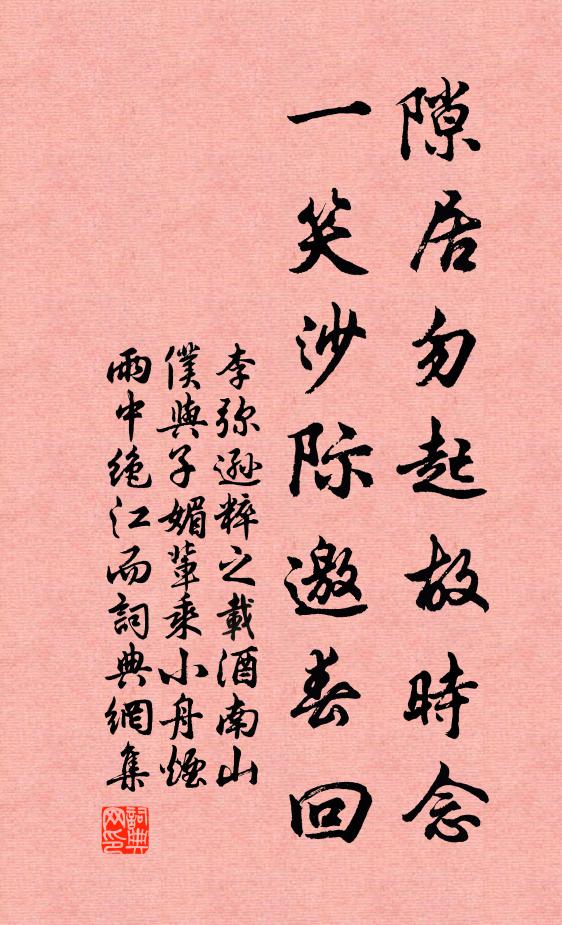 隙居勿起故時念
一笑沙际邀春回
李弥遜粹之載酒南山
僕與子媚輩乘小舟煙
雨中絶江而詞典網集
詞典网印